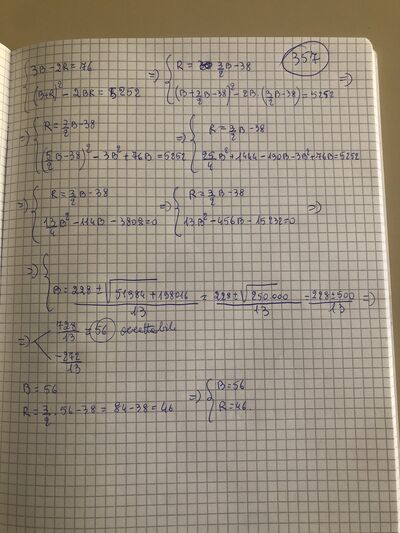 357
{3B-2R=76 => {R= 3/2 B-38
{(B+R)² - 2BR = 5252 {(B+3/2 B-38)² - 2B·(3/2 B-38) = 5252 =>
=> {R=3/2 B-38 => {R=3/2 B-38
{(5/2 B-38)² - 3B² + 76B = 5252 {25/4 B² + 1444 - 190B - 3B² + 76B = 5252
=> {R=3/2 B-38 => {R=3/2 B-38 =>
{13/4 B² - 114B - 3808 = 0 {13B² - 456B - 15232 = 0
=> {
{B = 228 ± √51984 + 198016 / 13 = 228 ± √250.000 / 13 = 228 ± 500 / 13 =>
=> < 728/13 = 56 accettabile
-272/13
B = 56 => {B = 56
R = 3/2 · 56 - 38 = 84 - 38 = 46 {R = 46.